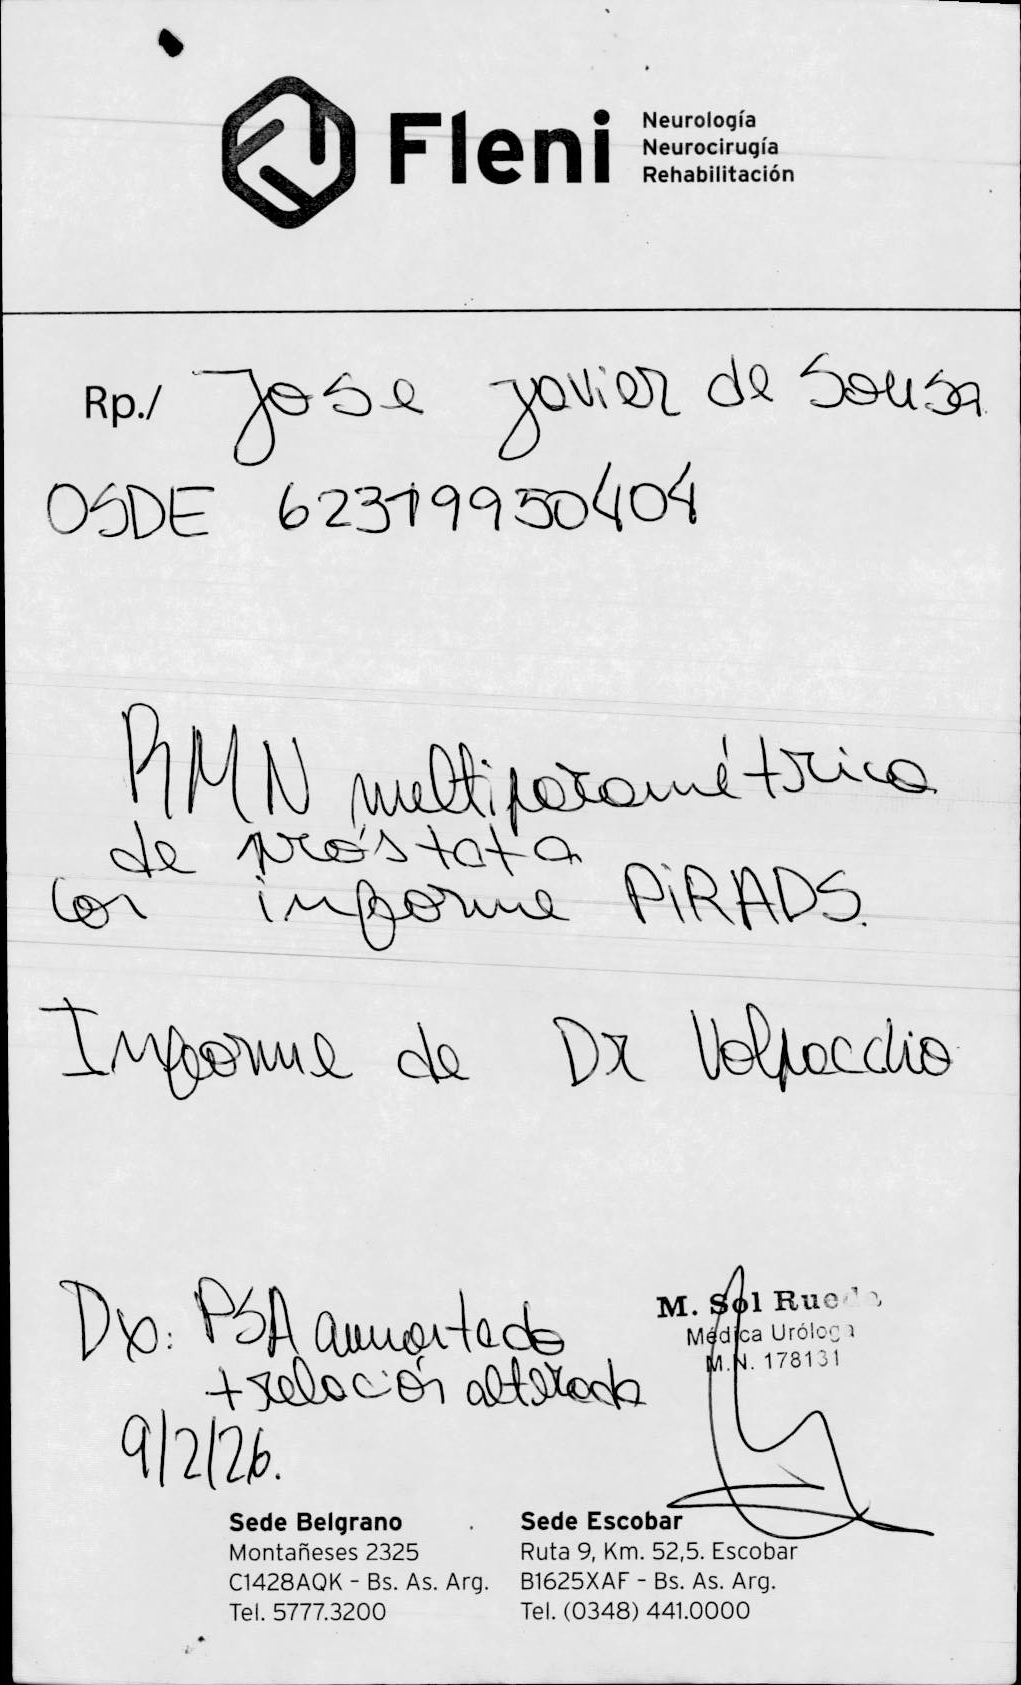 Fleni
Neurología
Neurocirugía
Rehabilitación
Rp./ Jose Javier de Sousa
OSDE 62319950404
RMN multiparamétrica
de próstata
con informe PiRADS.
Informe de Dr Volpacchio
Dx: PSA aumentado
+ relación alterada
9/2/26.
M. Sol Rueda
Médica Uróloga
M.N. 178131
Sede Belgrano
Montañeses 2325
C1428AQK - Bs. As. Arg.
Tel. 5777.3200
Sede Escobar
Ruta 9, Km. 52,5. Escobar
B1625XAF - Bs. As. Arg.
Tel. (0348) 441.0000